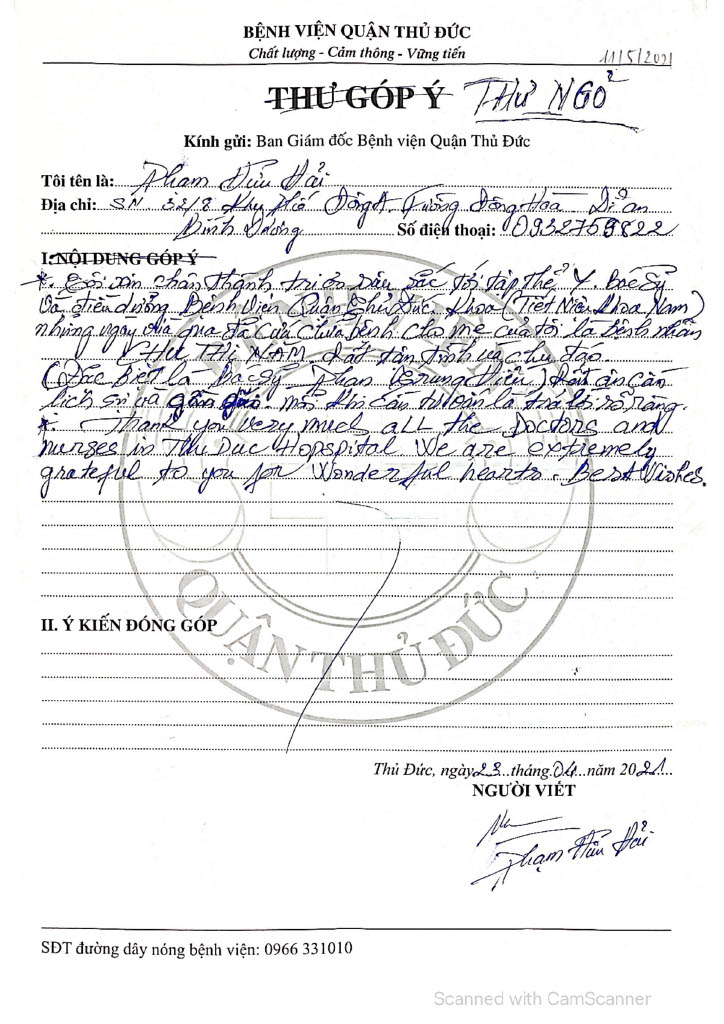 BỆNH VIỆN QUẬN THỦ ĐỨC
Chất lượng - Cảm thông - Vững tiến
11/5/2021
THƯ GÓP Ý THƯ NGỎ
Kính gửi: Ban Giám đốc Bệnh viện Quận Thủ Đức
Tôi tên là: Phạm Hữu Hải
Địa chỉ: SN 32/8 Khu phố Đông A. Đông Hòa Dĩ an
Bình Dương Số điện thoại: 0932759822
I. NỘI DUNG GÓP Ý
* Tôi xin chân thành tri ơn sâu sắc tới tập thể Y. Bác sỹ
và điều dưỡng Bệnh viện Quận Thủ Đức. Khoa (Tiết Niệu Khoa Nam)
những ngày vừa qua đã cứu chữa bệnh cho mẹ của tôi là bệnh nhân
CHU THỊ NĂM. Rất tận tình và chu đáo.
(Đặc Biệt là Bác sỹ Phan Trung Viễn) Rất ân cần
lịch sự và gần gũi. mỗi khi cần tư vấn là trả lời rõ ràng.
* Thank you very much all the Doctors and
nurses in Thu Duc Hopspital We are extremely
grateful to you for Wonderful hearts. Best Wishes.
II. Ý KIẾN ĐÓNG GÓP
QUẬN THỦ ĐỨC
Thủ Đức, ngày 23 tháng 04 năm 2021
NGƯỜI VIẾT
Phạm Hữu Hải
SĐT đường dây nóng bệnh viện: 0966 331010
Scanned with CamScanner